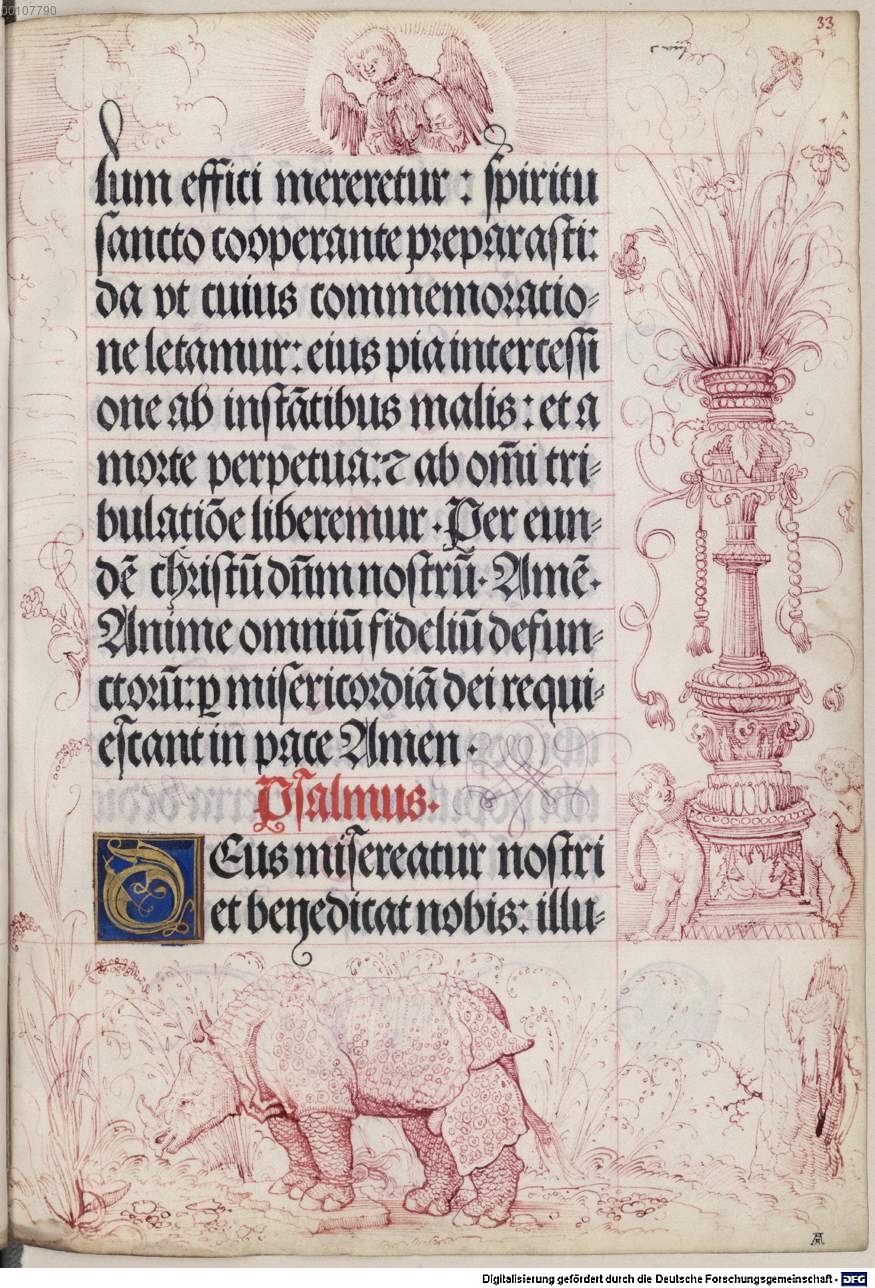 00107790
33
c viij
lum effici mereretur : spiritu
sancto cooperante preparasti:
da vt cuius commemoratio-
ne letamur: eius pia intercessi
one ab instātibus malis: et a
morte perpetua: ⁊ ab om̄i tri-
bulatiōe liberemur. Per eun-
dē christū dn̄m nostrū. Amē.
Anime omniū fideliū defun-
ctorū: ꝑ misericordiā dei requi-
escant in pace Amen.
Psalmus.
DEus misereatur nostri
et benedicat nobis: illu-
AA
Digitalisierung gefördert durch die Deutsche Forschungsgemeinschaft - DFG